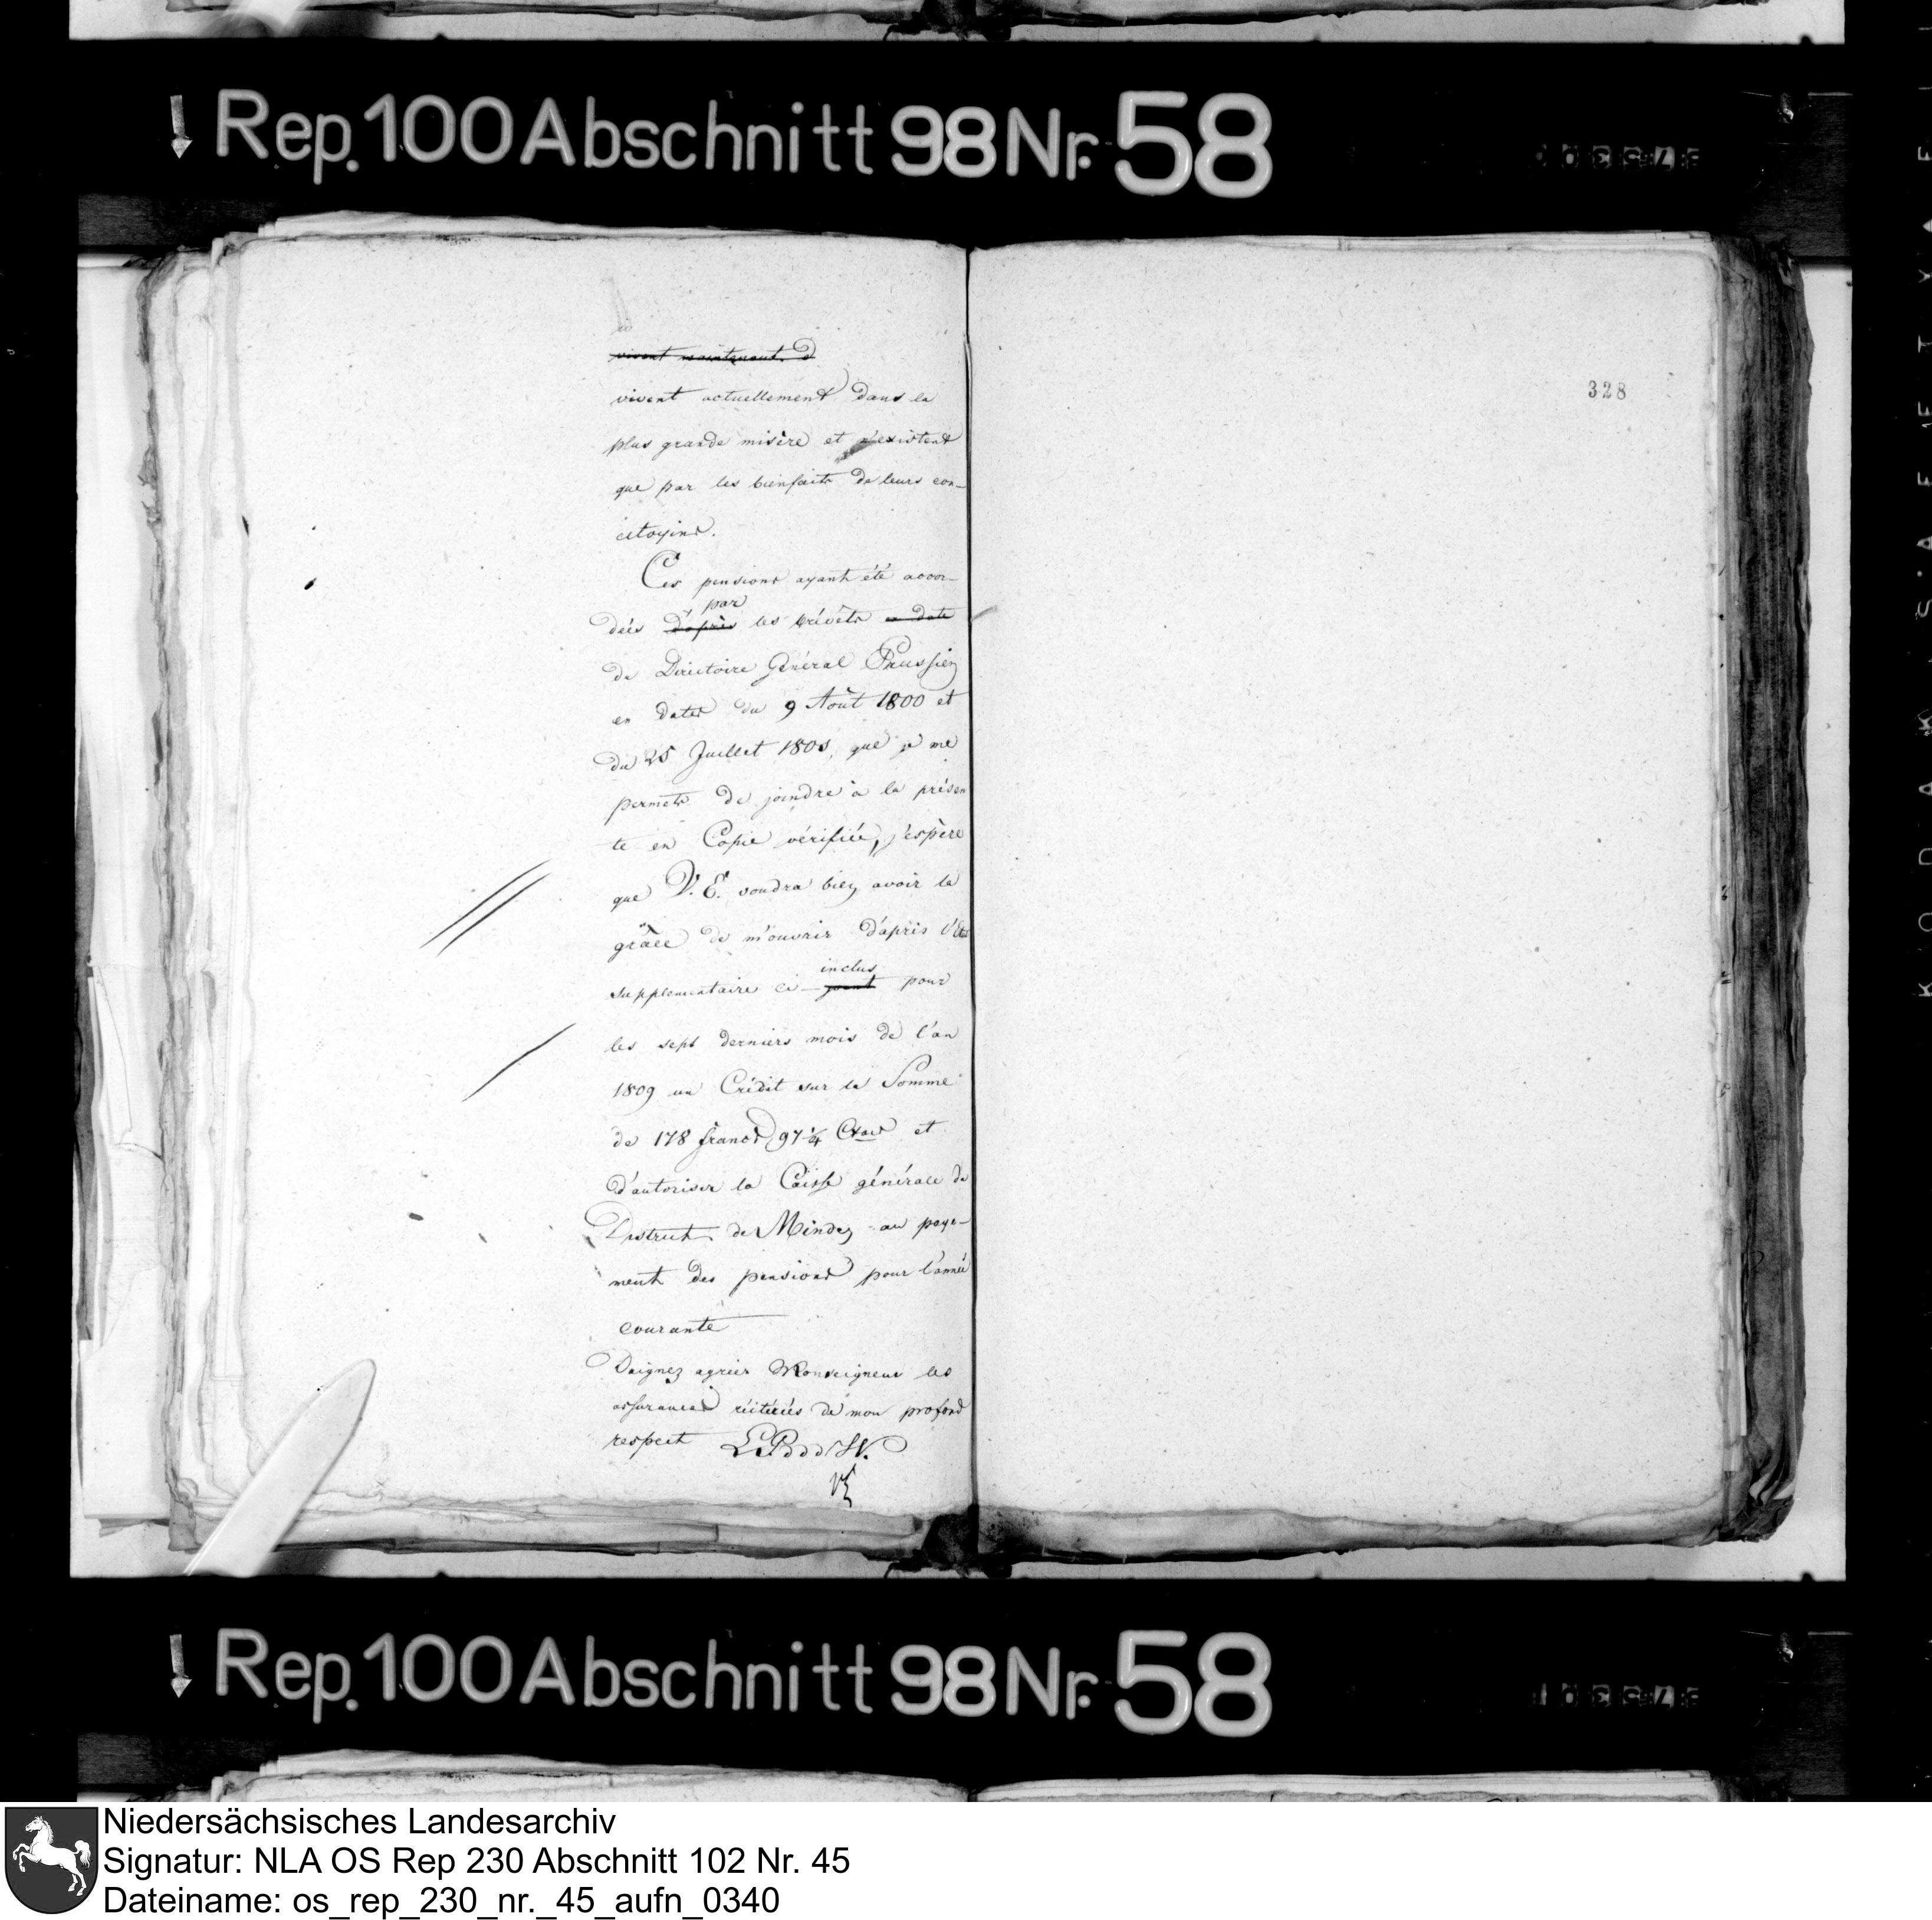 Rep. 100 Abschnitt 98 Nr. 58
vivent maintenant. d
vivent actuellement dans la
plus grande misère et n'existent
que par les bienfaits de leurs con-
citoyens.
Ces pensions ayant été accor-
par
dées d'après les brévêts en date
du Directoire Général Prussien
en dates du 9 Août 1800 et
du 25 Juillet 1801, que je me
permets de joindre à la présen
te en Copie vérifiée, j'espère
que V. E. voudra bien avoir la
grâce de m'ouvrir d'après l'Etat
inclus
supplementaire ci-joint pour
les sept derniers mois de l'an
1809 un Crédit sur la Somme
de 178 francs 97 1/4 Ctmes et
d'autoriser la Caisse générale du
District de Minden au paye-
ment des pensions pour l'année
courante
Daignez agréer Monseigneur les
assurances réitérées de mon profond
respect L. P. d. d. W.
328
Rep. 100 Abschnitt 98 Nr. 58
Niedersächsisches Landesarchiv
Signatur: NLA OS Rep 230 Abschnitt 102 Nr. 45
Dateiname: os_rep_230_nr._45_aufn_0340